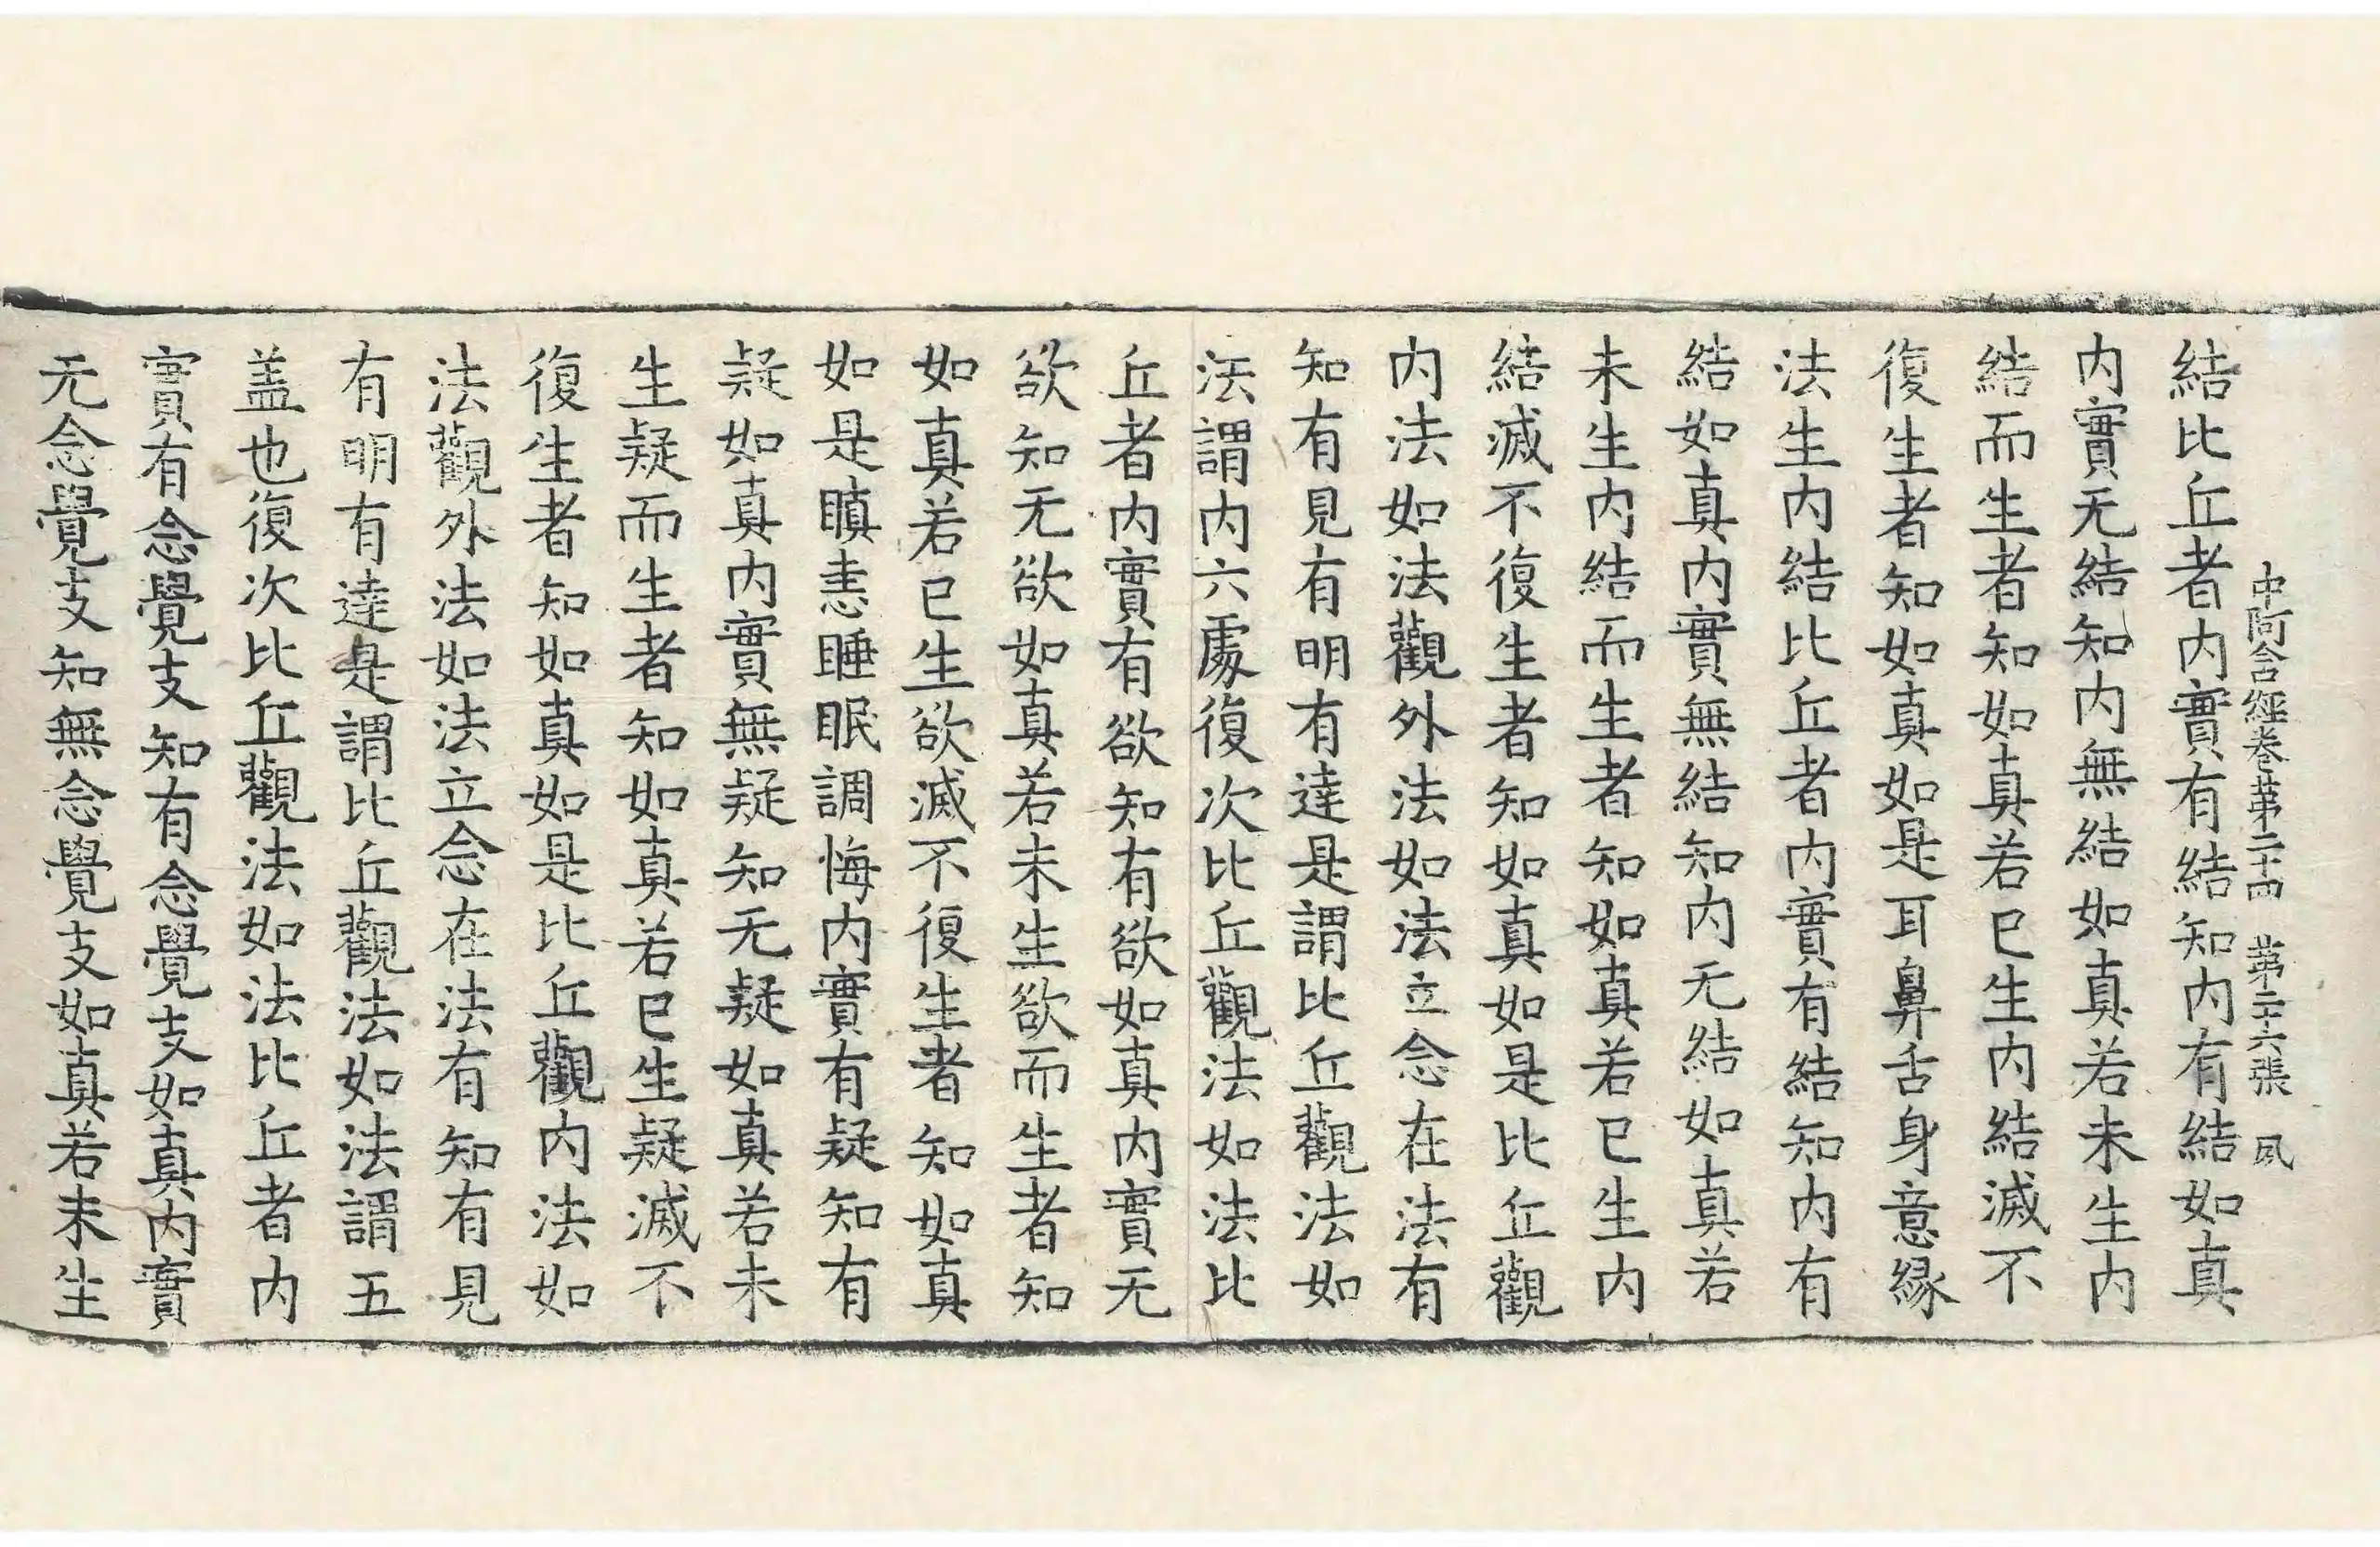 中阿含經卷第二十四 第二十六張 夙
結比丘者内實有結知内有結如真
内實无結知内無結如真若未生内
結而生者知如真若已生内結滅不
復生者知如真如是耳鼻舌身意縁
法生内結比丘者内實有結知内有
結如真内實無結知内无結如真若
未生内結而生者知如真若已生内
結滅不復生者知如真如是比丘觀
内法如法觀外法如法立念在法有
知有見有明有達是謂比丘觀法如
法謂内六處復次比丘觀法如法比
丘者内實有欲知有欲如真内實无
欲知无欲如真若未生欲而生者知
如真若已生欲滅不復生者知如真
如是瞋恚睡眠調悔内實有疑知有
疑如真内實無疑知无疑如真若未
生疑而生者知如真若已生疑滅不
復生者知如真如是比丘觀内法如
法觀外法如法立念在法有知有見
有明有達是謂比丘觀法如法謂五
盖也復次比丘觀法如法比丘者内
實有念覺支知有念覺支如真内實
无念覺支知無念覺支如真若未生